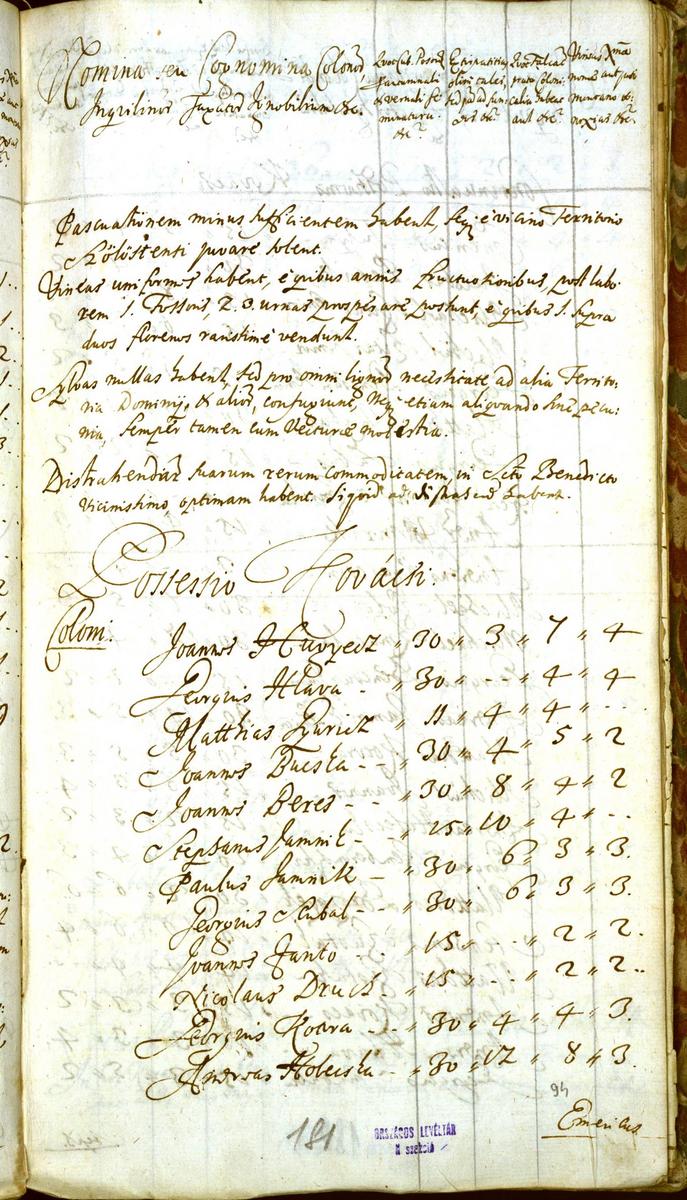 Nomina seu Cognomina Colonorũ
Inquilinorũ Taxatorũ Ignobilium &c.
Quot Cub. Posonien.
Autumnali
& vernali se
minatura.
&c.
Extirpatitios
olim
sed
&c.
Quot Falcarũ
prata Coloni
calia habeat
aut &c.
Vinea
aut
noxias &c.
Pascuationem minus sufficientem habent, seq. è vicino Territorio
Szőlőstensi juvare solent.
Vineas uniformes habent, è quibus annis fructuosioribus, post labo-
rem 1. Fossoris, 2. 3. urnas prosperare possunt, è quibus 1. supra
duos florenos rarissimè vendunt.
Sylvas nullas habent, sed pro omni lignorũ necessitate ad alia Territo-
ria Dominij, & alior, confugiunt, etiam aliquando sine pecu-
nia, semper tamen cum Vecturæ molestia.
Distrahendar suarum rerum commoditatem, in Scto Benedicto
Vicinissimo, optimam habent. Siquid ad habent.
Possessio Kovácsi.
Coloni.
Joannes Hugyecz " 30 " 3 " 7 " 4
Georgius Hlava - " 30 " -- " 4 " 4
Matthias Gyuricz " 11 " 4 " 4 " ..
Joannes Bucska -- " 30 " 4 " 5 " 2
Joannes Beres -- " 30 " 8 " 4 " 2
Stephanus Jamnik - " 15 " 10 " 4 " ..
Paulus Jamnik - " 30 " 6 " 3 " 3.
Georgius Skubal -- " 30 " 6 " 3 " 3.
Joannes Janto --- " 15 " .. " 2 " 2.
Nicolaus Druck - " 15 " .. " 2 " 2..
Georgius Kotra -- " 30 " 4 " 4 " 3.
Andreas Holecska - " 30 " 12 " 8 " 3.
94
Emericus
181
ORSZÁGOS LEVÉLTÁR
N szekció